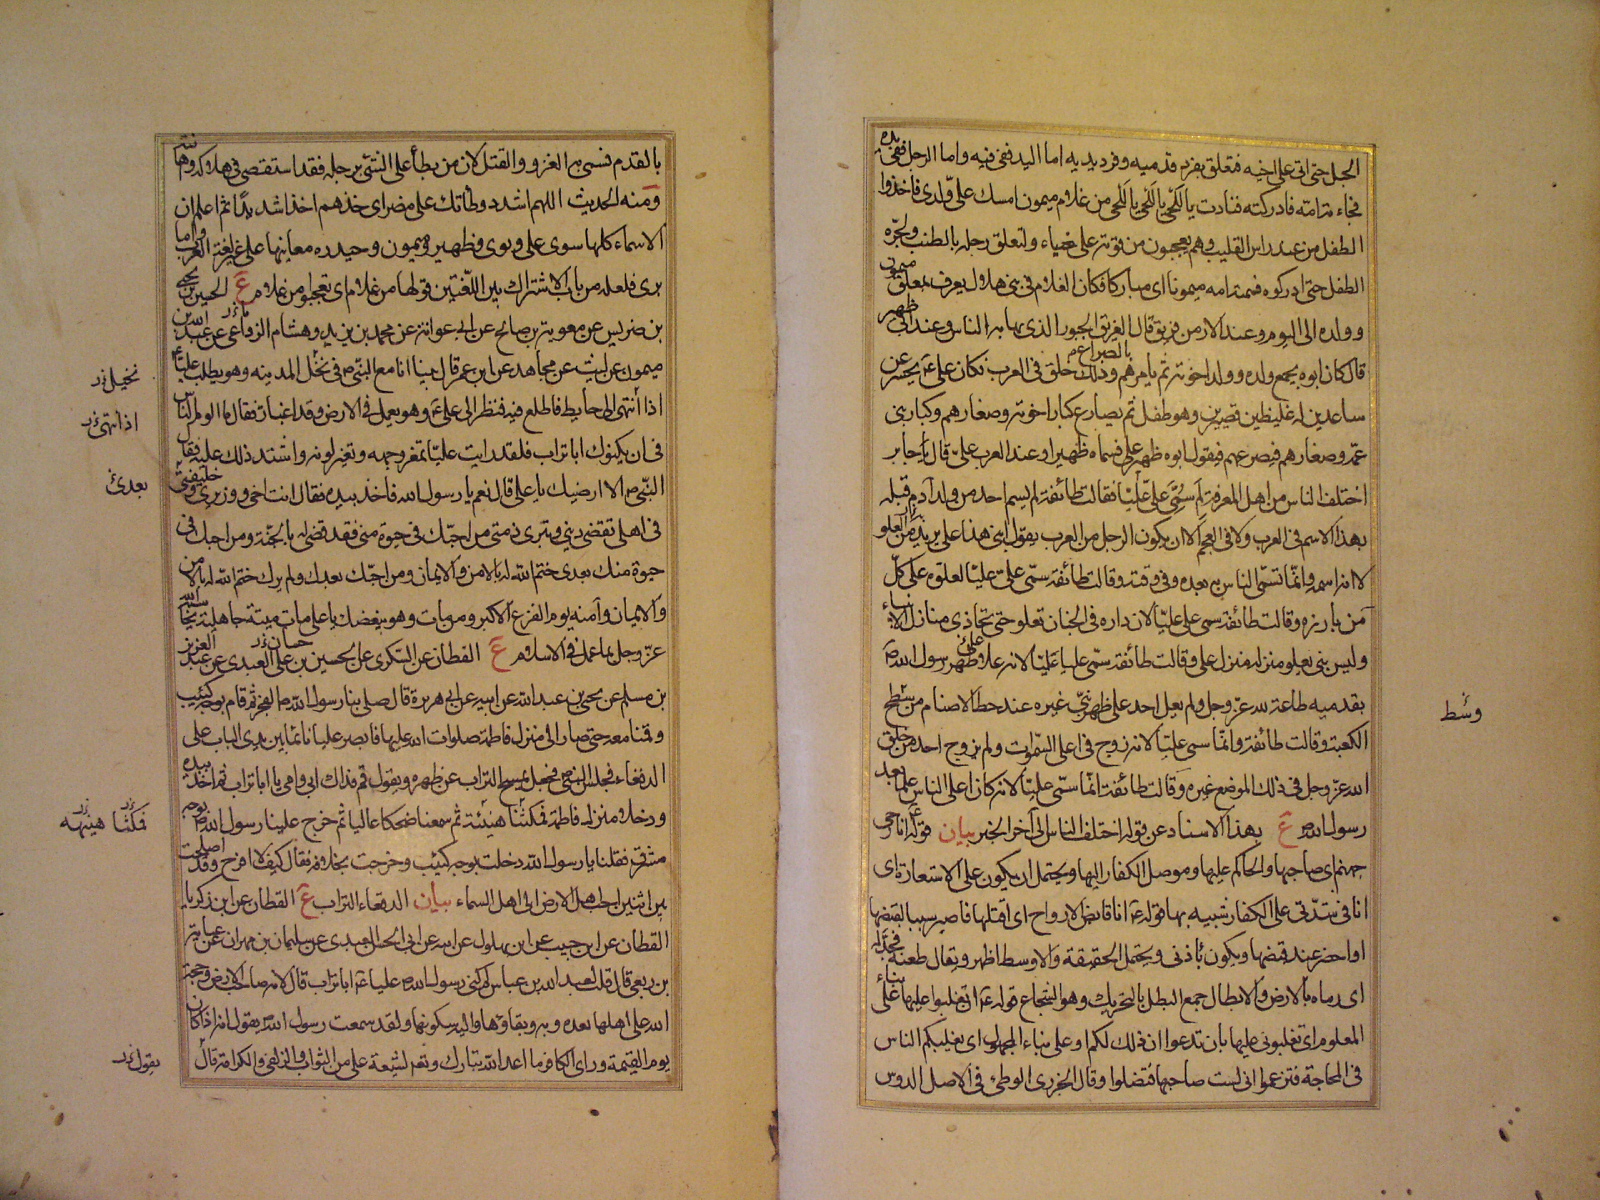 الحبل حتى اتى على اخيه فتعلق بفرد قدميه وفرد يديه اما اليد ففى فيه واما الرجل ففى يده
فجاءته امه فادركته فنادت ياللحى ياللحى ياللحى من غلام ميمون امسك على ولدى فاخذوا
الطفل من عند راس القليب وهم يعجبون من قوته على صباء ولتعلق رجله بالطنب ولجره
الطفل حتى ادركوه فسمته امه ميمونا اى مباركا فكان الغلام فى بنى هلال يعرف بمعلق ميمون
وولده الى اليوم وعند الارمن فريق قال الفريق الجسور الذى يهابه الناس وعند ابى ظهير
قال كان ابوه يجمع ولده وولد اخوته ثم يامرهم بالصراع وذلك خلق فى العرب فكان على يحسر عن
ساعدين له غليظين قصيرين وهو طفل ثم يصارع كبار اخوته وصغارهم وكبار بنى
عمه وصغارهم فيصرعهم فيقول ابوه ظهر على فسماه ظهيرا وعند العرب على قال جابر
اختلف الناس من اهل المعرفة لم سمى على عليا فقالت طائفة لم يسم احد من ولد آدم قبله
بهذا الاسم فى العرب ولا فى العجم الا ان يكون الرجل من العرب يقول ابنى هذا على يريد به من العلو
لا انه اسمه وانما تسمى الناس به بعده وفى وقته وقالت طائفة سمى على عليا لعلوه على كل
من بارزه وقالت طائفة سمى على عليا لان داره فى الجنان تعلو حتى تحاذى منازل الانبياء
وليس نبى يعلو منزله منزل على وقالت طائفة سمى على عليا لانه علا على ظهر رسول الله
بقدميه طاعة لله عز وجل ولم يعل احد على ظهر نبى غيره عند حط الاصنام من سطح
الكعبة وقالت طائفة وانما سمى عليا لانه زوج فى اعلى السموات ولم يزوج احد من خلق
الله عز وجل فى ذلك الموضع غيره وقالت طائفة انما سمى على عليا لانه كان اعلى الناس علما بعد
رسول الله ع بهذا الاسناد عن قوله اختلف الناس الى آخر الخبر بيان قوله انا رحى
جهنم اى صاحبها والحاكم عليها وموصل الكفار اليها ويحتمل ان يكون على الاستعارة اى
انا فى شدتى على الكفار شبيه بها قوله انا قابض الارواح اى اقتلها فاصير سببا لقبضها
او احضر عند قبضها ويكون باذنى ويحتمل الحقيقة والاوسط اظهر ويقال طعنه فجدله
اى رماه بالارض والابطال جمع البطل بالتحريك وهو الشجاع قوله ان تغلبوا عليها بناء على
المعلوم اى تغلبونى عليها بان تدعوا ان ذلك لكم او على بناء المجهول اى يغلبكم الناس
فى المحاجة فتزعموا انى لست صاحبها فتضلوا وقال الجزرى الوطئ فى الاصل الدوس
وسط
بالقدم فسمى به الغزو والقتل لان من يطأ على الشئ برجله فقد استقصى فى هلاكه
ومنه الحديث اللهم اشدد وطأتك على مضر اى خذهم اخذا شديدا ثم اعلم ان
الاسماء كلها سوى على وبوى وظهير وميمون وحيدره معانيها على غير لغة العرب واما
برى فلعله من باب الاشتراك بين اللغتين قولها من غلام اى تعجبوا من غلام ع الحسين بن يحيى
بن ضريس عن معوية بن صالح عن ابى عوانة عن محمد بن يزيد وهشام الزواعى عن عبد الله بن
ميمون عن ليث عن مجاهد عن ابن عمر قال بينا انا مع النبى فى نخل المدينه وهو يطلب عليا
اذا انتهى الى حايط فاطلع فيه فنظر الى على وهو يعمل فى الارض وقد اغبار فقال ما الوم الناس
فى ان يكنوك ابا تراب فلقد رايت عليا تمعر وجهه وتغير لونه واشتد ذلك عليه فقال
النبى الا ارضيك يا على قال نعم يا رسول الله فاخذ بيده فقال انت اخى ووزيرى وخليفتى
فى اهلى تقضى دينى وتبرى ذمتى من احبك فى حيوة منى فقد قضى له بالجنة ومن احبك فى
حيوة منك بعدى ختم الله له بالامن والايمان ومن احبك بعدك ولم يرك ختم الله له بالامن
والايمان وآمنه يوم الفزع الاكبر ومن مات وهو يبغضك يا على مات ميتة جاهلية يحاسبه الله
عز وجل بما عمل فى الاسلام ع القطان عن السكرى عن الحسين بن على العبدى عن عبد العزيز
بن مسلم عن يحيى بن عبد الله عن ابيه عن ابى هريرة قال صلى بنا رسول الله الفجر ثم قام بوجه كئيب
وقمنا معه حتى صار الى منزل فاطمة صلوات الله عليها فابصر عليا نائما بين يدى الباب على
الدقعاء فجلس النبى فجعل يمسح التراب عن ظهره ويقول قم فداك ابى وامى يا ابا تراب ثم اخذ بيده
ودخلا منزل فاطمة فمكثنا هنيئة ثم سمعنا ضحكا عاليا ثم خرج علينا رسول الله بوجه
مشرق فقلنا يا رسول الله دخلت بوجه كئيب وخرجت بخلافه فقال كيف لا افرح وقد اصلحت
بين اثنين احب اهل الارض الى اهل السماء بيان الدقعاء التراب ع القطان عن ابن زكريا
القطان عن ابن حبيب عن ابن بهلول عن ابيه عن ابى الحسن العبدى عن سليمان بن مهران عن عباية
بن ربعى قال قلت لعبد الله بن عباس لم كنى رسول الله عليا ابا تراب قال لانه صاحب الارض وحجة
الله على اهلها بعده وبه بقاؤها واليه سكونها ولقد سمعت رسول الله يقول انه اذا كان
يوم القيمة وراى الكافر ما اعد الله تبارك وتعالى لشيعة على من الثواب والزلفى والكرامة قال
نخيل
اذا انتهى
بعدى
فمكثنا هنيهه
يقول